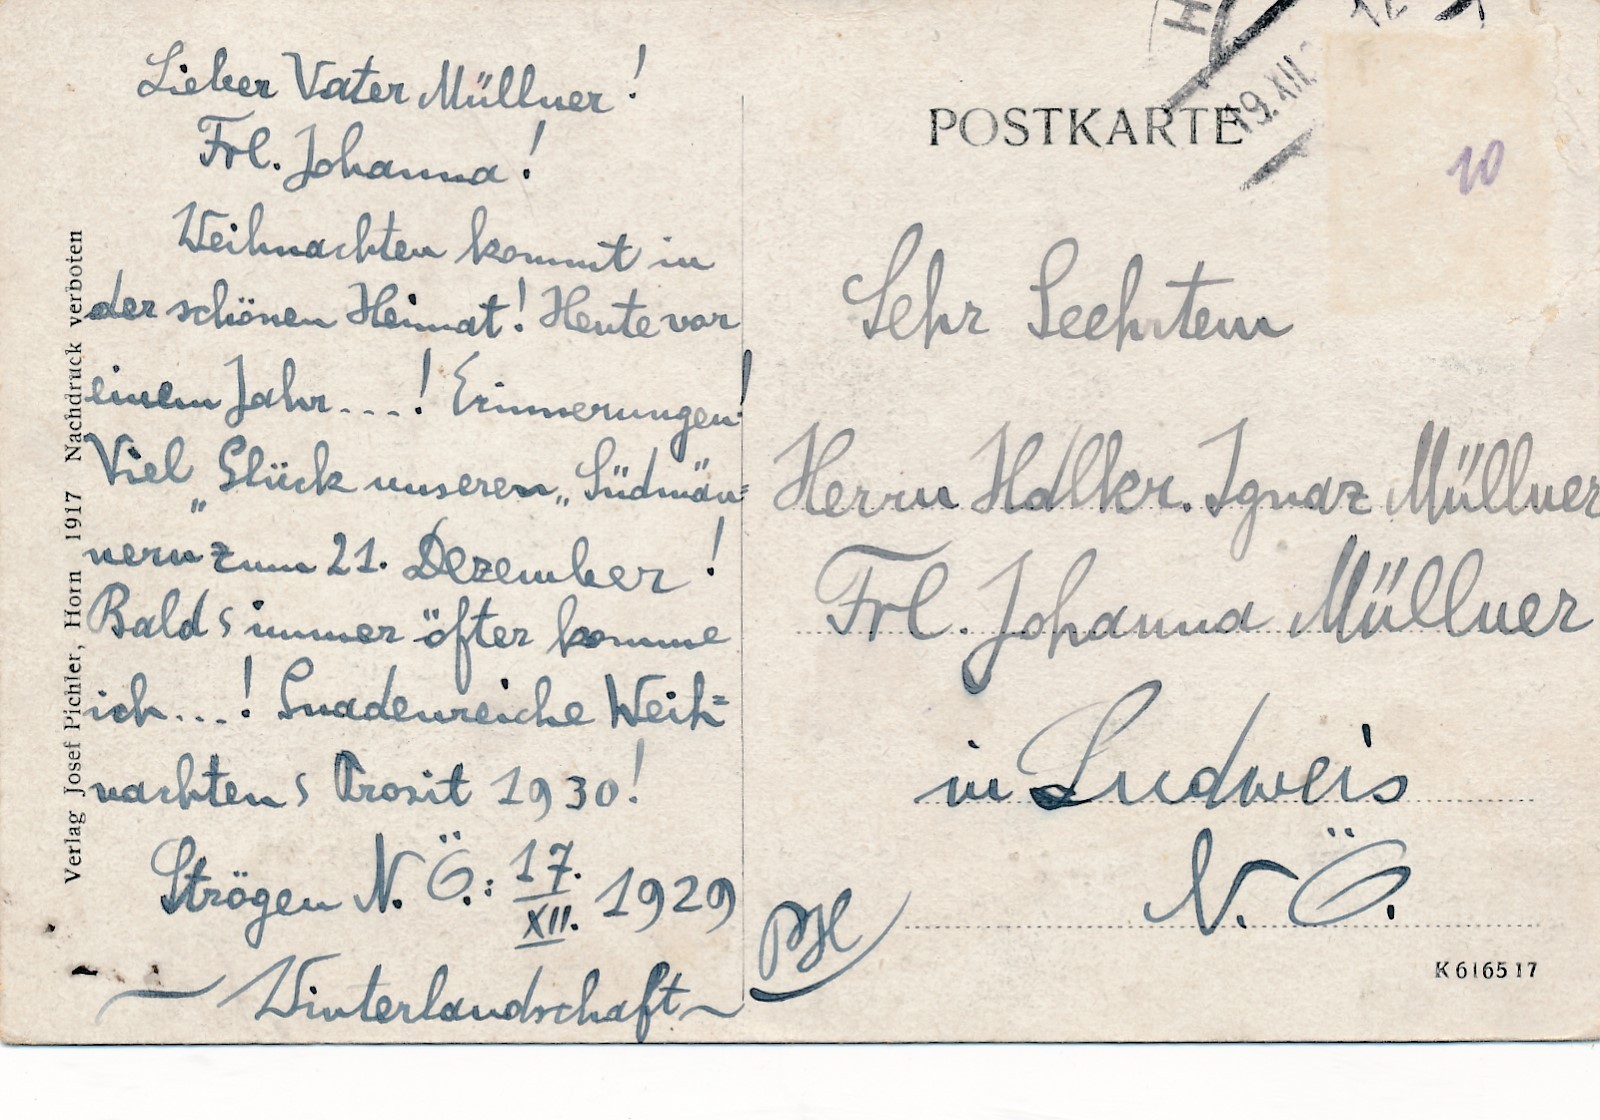 Lieber Vater Müllner!
Frl. Johanna!
Weihnachten kommt in
der schönen Heimat! Heute vor
einem Jahr...! Erinnerungen!
Viel „Glück unseren „Südmän=
nern zum 21. Dezember!
Bald s immer öfter komme
ich...! Gnadenreiche Weih=
nachten s Prosit 1930!
Strögen N. Ö.: 17. XII. 1929
~ Winterlandschaft ~
Verlag Josef Pichler, Horn 1917 Nachdruck verboten
POSTKARTE
19.XII.
10
Sehr Geehrtem
Herrn Hdlkr. Ignaz Müllner
Frl. Johanna Müllner
in Ludweis
N. Ö.
PH
K 6165 17